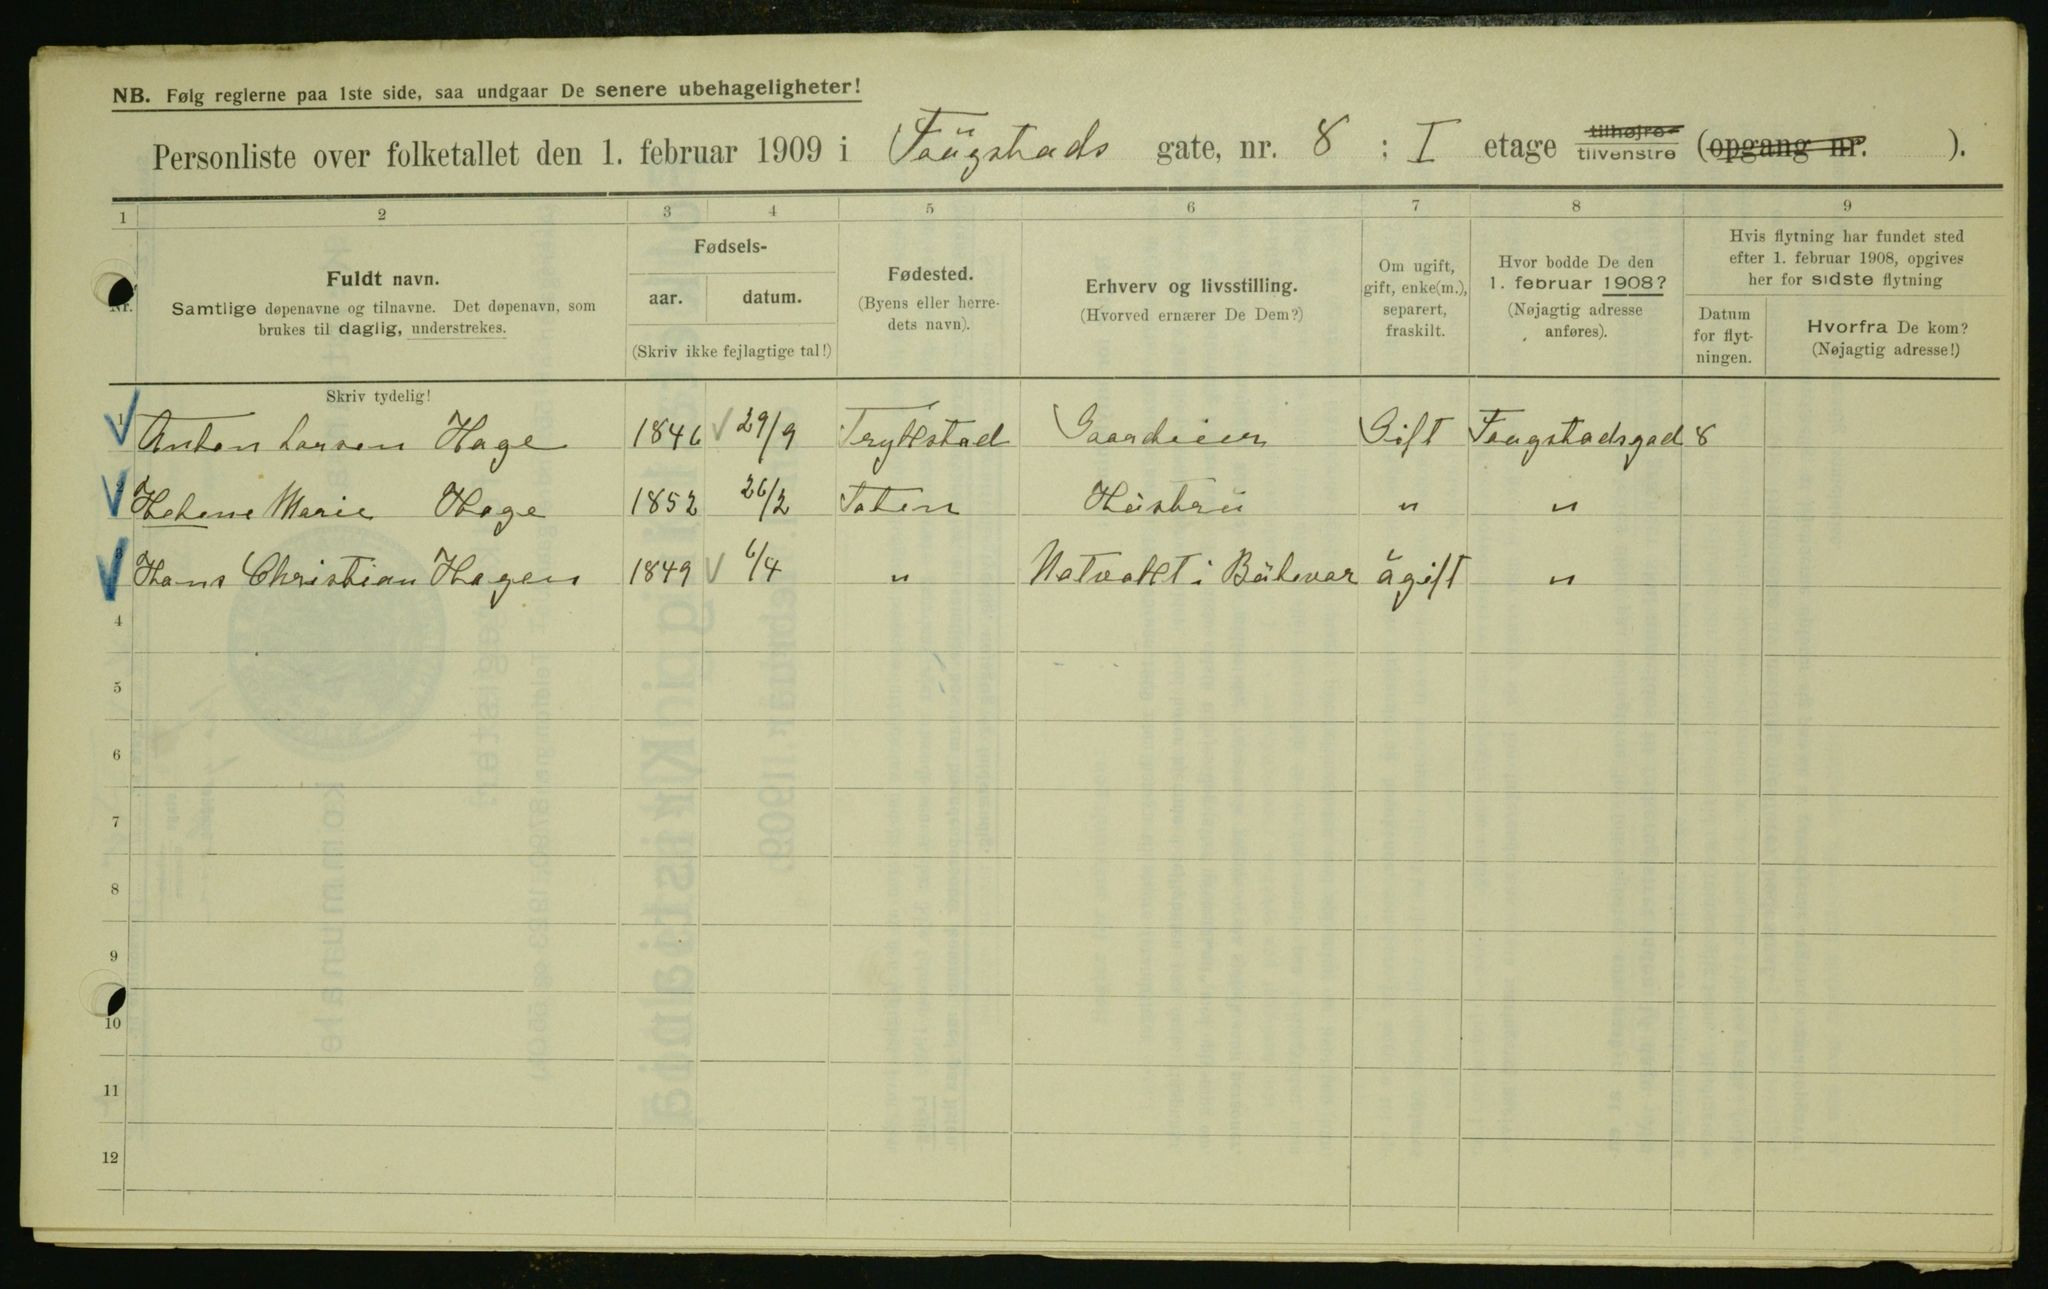 NB. Følg reglerne paa 1ste side, saa undgaar De senere ubehageligheter!
Personliste over folketallet den 1. februar 1909 i Faügstads gate, nr. 8 : I etage tilhøjre tilvenstre (opgang nr. ).
1 2 3 4 5 6 7 8 9
Nr.
Fuldt navn.
Samtlige døpenavne og tilnavne. Det døpenavn, som
brukes til daglig, understrekes.
Skriv tydelig!
Fødsels-
aar. datum.
(Skriv ikke fejlagtige tal!)
Fødested.
(Byens eller herre-
dets navn).
Erhverv og livsstilling.
(Hvorved ernærer De Dem?)
Om ugift,
gift, enke(m.),
separert,
fraskilt.
Hvor bodde De den
1. februar 1908?
(Nøjagtig adresse
anføres).
Hvis flytning har fundet sted
efter 1. februar 1908, opgives
her for sidste flytning
Datum
for flyt-
ningen.
Hvorfra De kom?
(Nøjagtig adresse!)
1 Anton Larsen Hage 1846 29/9 Trykstad Gaardeier Gift Faugstadsgad 8
2 Helene Marie Hage 1852 26/2 Toten Hüstrü " "
3 Hans Christian Hagen 1849 6/4 " Natvakt i Bülevar ügift "
4
5
6
7
8
9
10
11
12